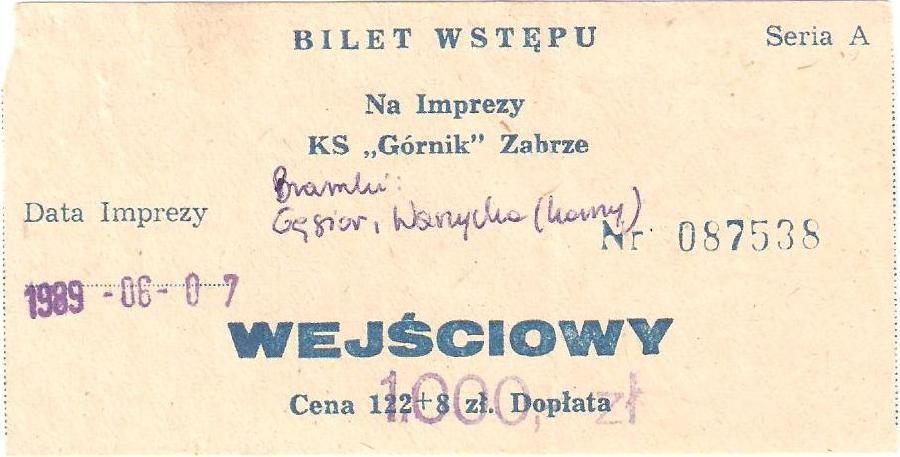 BILET WSTĘPU Seria A
Na Imprezy
KS „Górnik” Zabrze
Bramki:
Gęsior, Warzycha (karny)
Data Imprezy
Nr 087538
1989 -06- 0 7
WEJŚCIOWY
1.000,- zł
Cena 122+8 zł. Dopłata